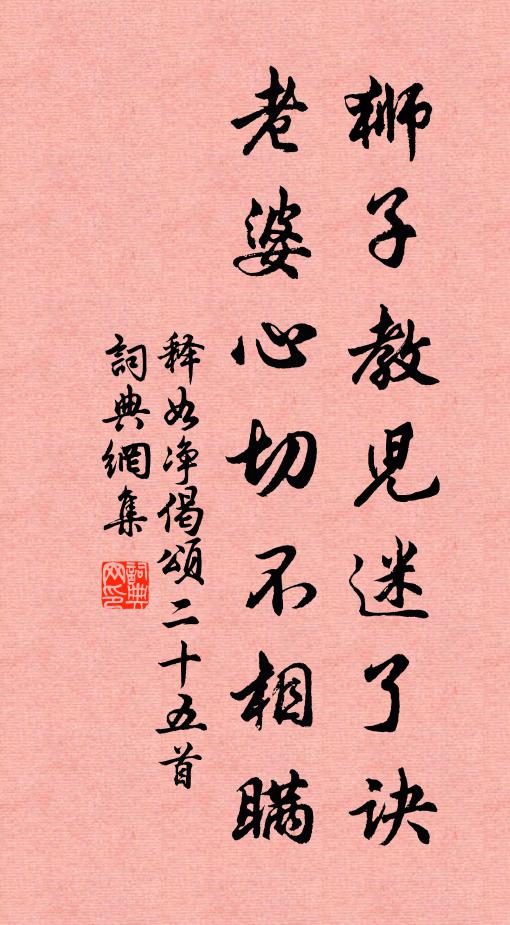 獅子教兒迷了訣
老婆心切不相瞞
释如净偈頌二十五首
詞典網集
詞典網印